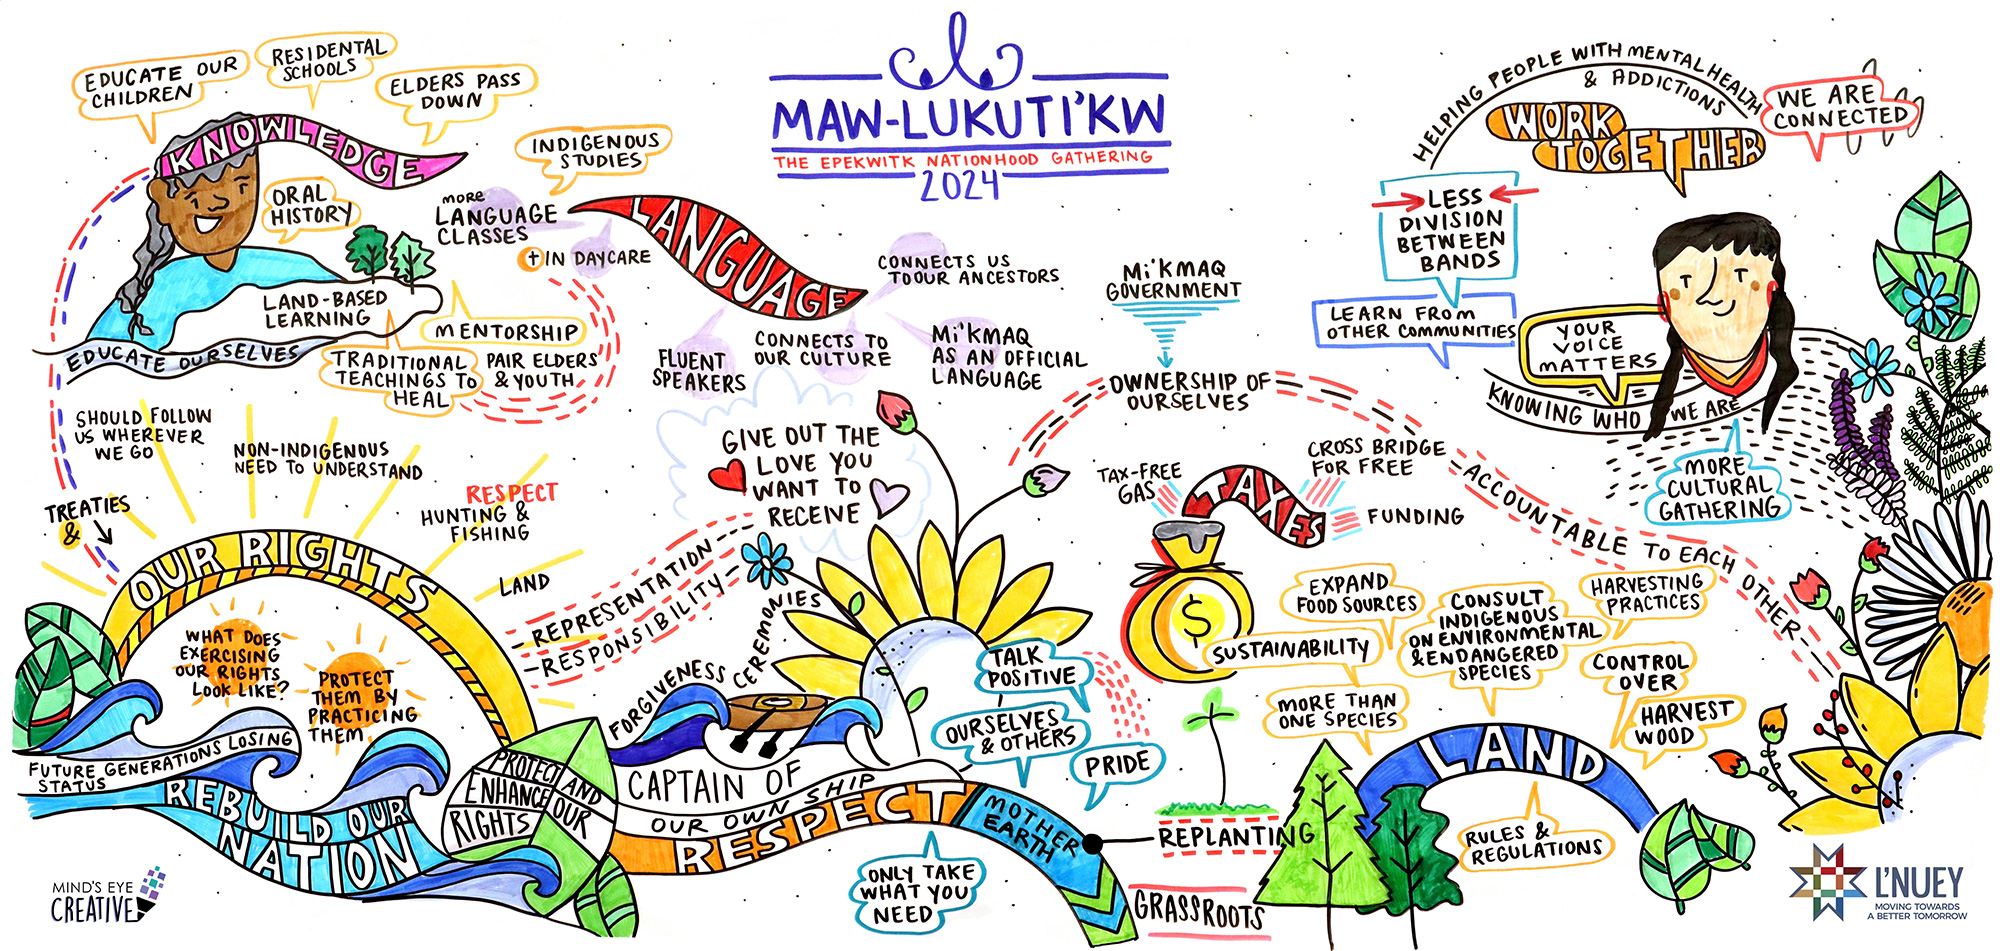 MAW-LUKUTI'KW
THE EPEKWITK NATIONHOOD GATHERING
2024
EDUCATE OUR
CHILDREN
RESIDENTAL
SCHOOLS
ELDERS PASS
DOWN
KNOWLEDGE
ORAL
HISTORY
INDIGENOUS
STUDIES
MORE
LANGUAGE
CLASSES
+ IN DAYCARE
LAND-BASED
LEARNING
EDUCATE OURSELVES
MENTORSHIP
TRADITIONAL
TEACHINGS TO
HEAL
PAIR ELDERS
& YOUTH
LANGUAGE
CONNECTS US
TO OUR ANCESTORS
FLUENT
SPEAKERS
CONNECTS TO
OUR CULTURE
MI'KMAQ
AS AN OFFICIAL
LANGUAGE
MI'KMAQ
GOVERNMENT
OWNERSHIP OF
OURSELVES
HELPING PEOPLE WITH MENTAL HEALTH
& ADDICTIONS
WORK
TOGETHER
WE ARE
CONNECTED
LESS
DIVISION
BETWEEN
BANDS
LEARN FROM
OTHER COMMUNITIES
YOUR
VOICE
MATTERS
KNOWING WHO WE ARE
MORE
CULTURAL
GATHERING
SHOULD FOLLOW
US WHEREVER
WE GO
NON-INDIGENOUS
NEED TO UNDERSTAND
RESPECT
HUNTING &
FISHING
LAND
TREATIES
&
OUR RIGHTS
WHAT DOES
EXERCISING
OUR RIGHTS
LOOK LIKE?
PROTECT
THEM BY
PRACTICING
THEM
FUTURE GENERATIONS LOSING
STATUS
REBUILD OUR
NATION
PROTECT AND
ENHANCE OUR
RIGHTS
GIVE OUT THE
LOVE YOU
WANT TO
RECEIVE
REPRESENTATION
RESPONSIBILITY
FORGIVENESS
CEREMONIES
CAPTAIN OF
OUR OWN SHIP
RESPECT
MOTHER
EARTH
TALK
POSITIVE
OURSELVES
& OTHERS
PRIDE
ONLY TAKE
WHAT YOU
NEED
REPLANTING
GRASSROOTS
TAX-FREE
GAS
TAXES
CROSS BRIDGE
FOR FREE
FUNDING
$
ACCOUNTABLE TO EACH OTHER
EXPAND
FOOD SOURCES
SUSTAINABILITY
MORE THAN
ONE SPECIES
CONSULT
INDIGENOUS
ON ENVIRONMENTAL
& ENDANGERED
SPECIES
HARVESTING
PRACTICES
CONTROL
OVER
HARVEST
WOOD
LAND
RULES &
REGULATIONS
MIND'S EYE
CREATIVE
L'NUEY
MOVING TOWARDS
A BETTER TOMORROW